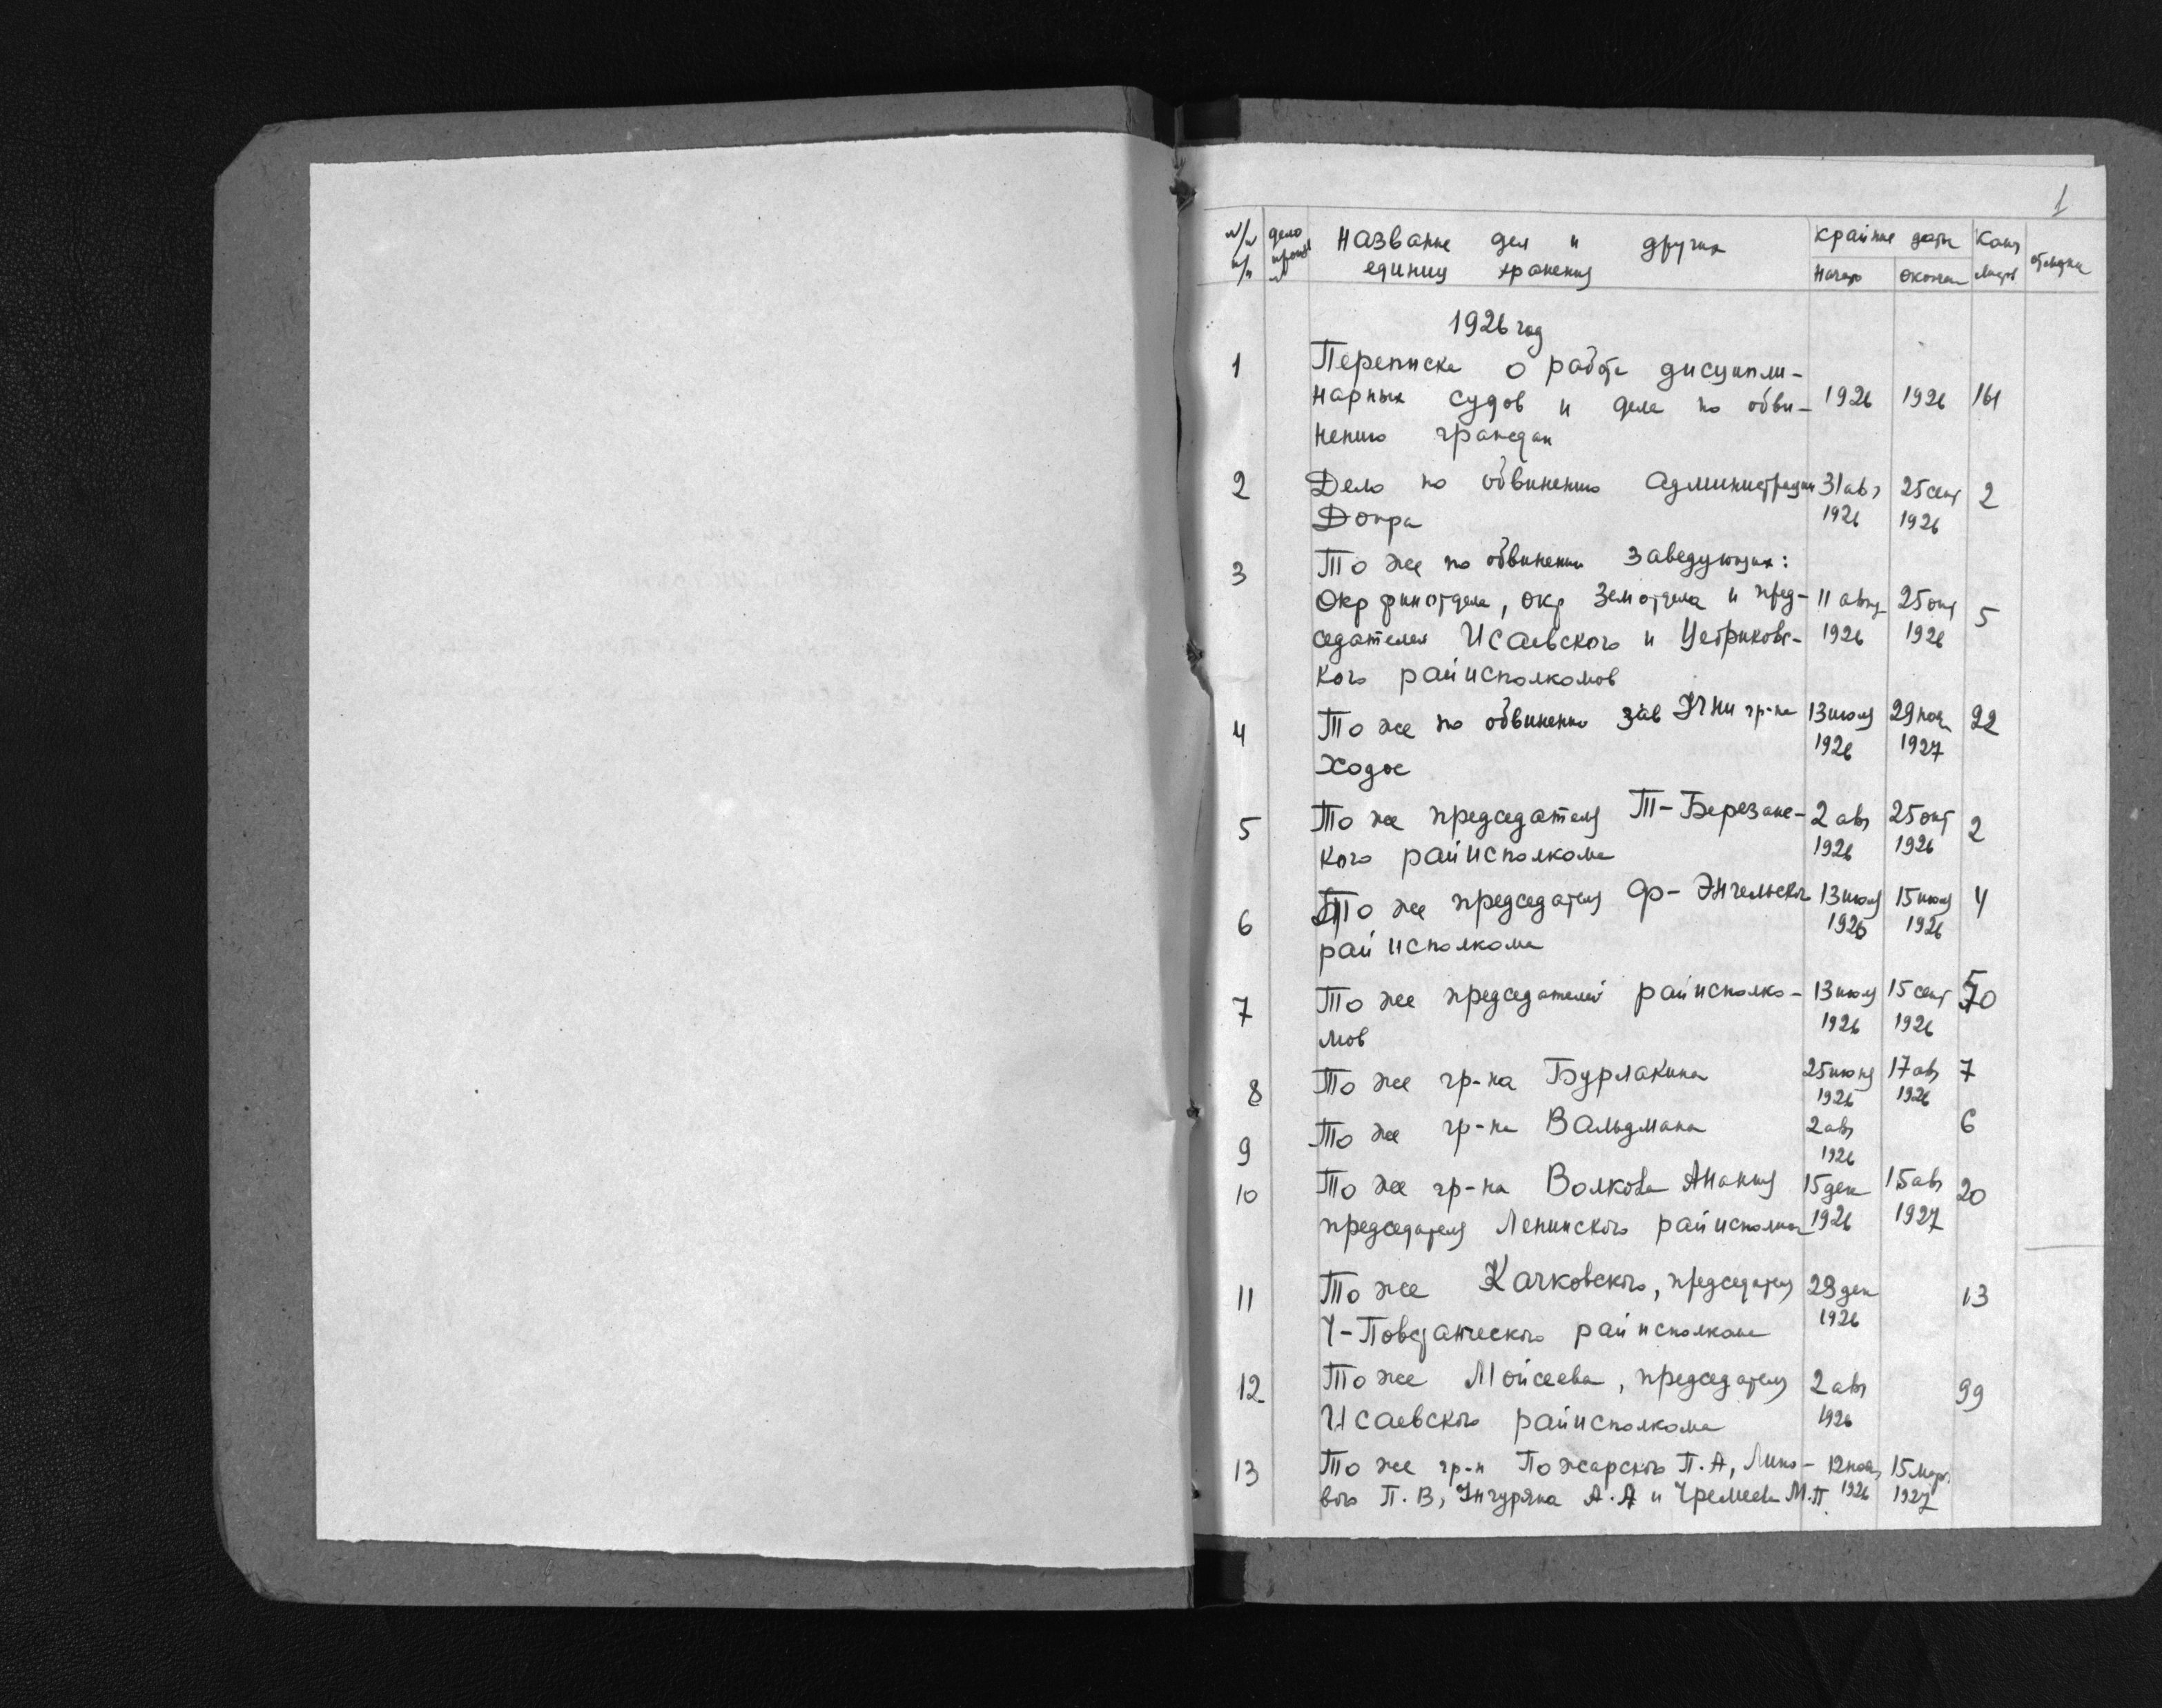 1
№/№ п/п дело произв № Название дел и других единиц хранения Крайние даты Начало Окончан Колич листов
1926 год
1 Переписка о работе дисципли-
нарных судов и дела по обви- 1926 1926 161
нению граждан
2 Дело по обвинению администрации 31 авг 25 сент 2
Допра 1926 1926
3 То же по обвинению заведующих:
Окрфинотдела, окр земотдела и пред- 11 авг 25 окт 5
седателей Исаевского и Цебриковс- 1926 1926
кого райисполкомов
4 То же по обвинению зав гр-на 13 июля 29 ноя 22
Ходос 1926 1927
5 То же председателя Т-Березанс- 2 авг 25 окт 2
кого райисполкома 1926 1926
6 То же председателя Фр-Энгельского 13 июля 15 июля 4
райисполкома 1926 1926
7 То же председателей райисполко- 13 июля 15 сент
мов 1926 1926
8 То же гр-на Бурлакина 25 июня 17 авг 7
1926 1926
9 То же гр-на Вальдмана 2 авг 6
1926
10 То же гр-на Волкова Анания 15 дек 15 авг 20
председателя Ленинского райисполкома 1926 1927
11 То же Качковского, председателя 29 дек 13
райисполкома 1926
12 То же Мойсеева, председателя 2 авг 99
Исаевского райисполкома 1926
13 То же гр-н Пожарского П.А, Лино- 12 ноя 15 март
вого П.В, А.А и М.П. 1926 1927